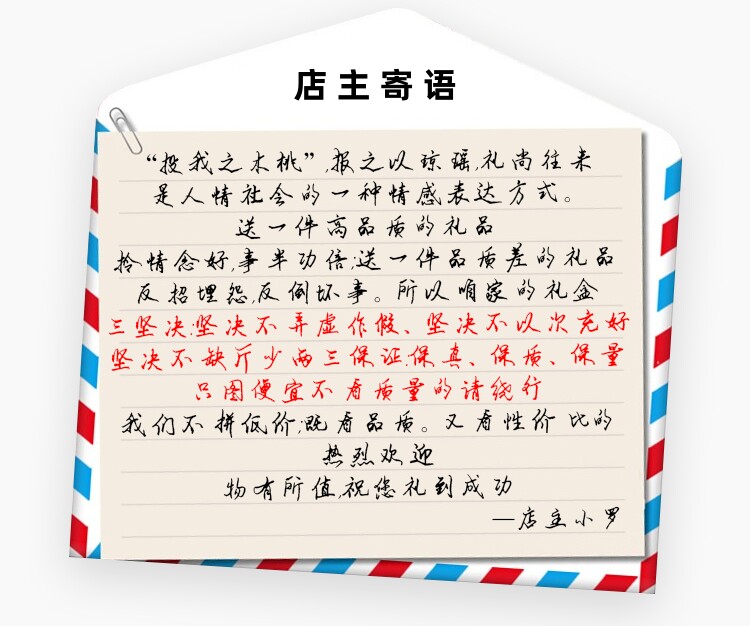 店主寄语
“投我之木桃”,报之以琼瑶,礼尚往来
是人情社会的一种情感表达方式。
送一件高品质的礼品
拎情念好,事半功倍;送一件品质差的礼品
反招埋怨,反倒坏事。所以咱家的礼盒
三坚决:坚决不弄虚作假、坚决不以次充好
坚决不缺斤少两三保证:保真、保质、保量
只图便宜不看质量的请绕行
我们不拼低价;既看品质。又看性价比的
热烈欢迎
物有所值,祝您礼到成功
—店主小罗